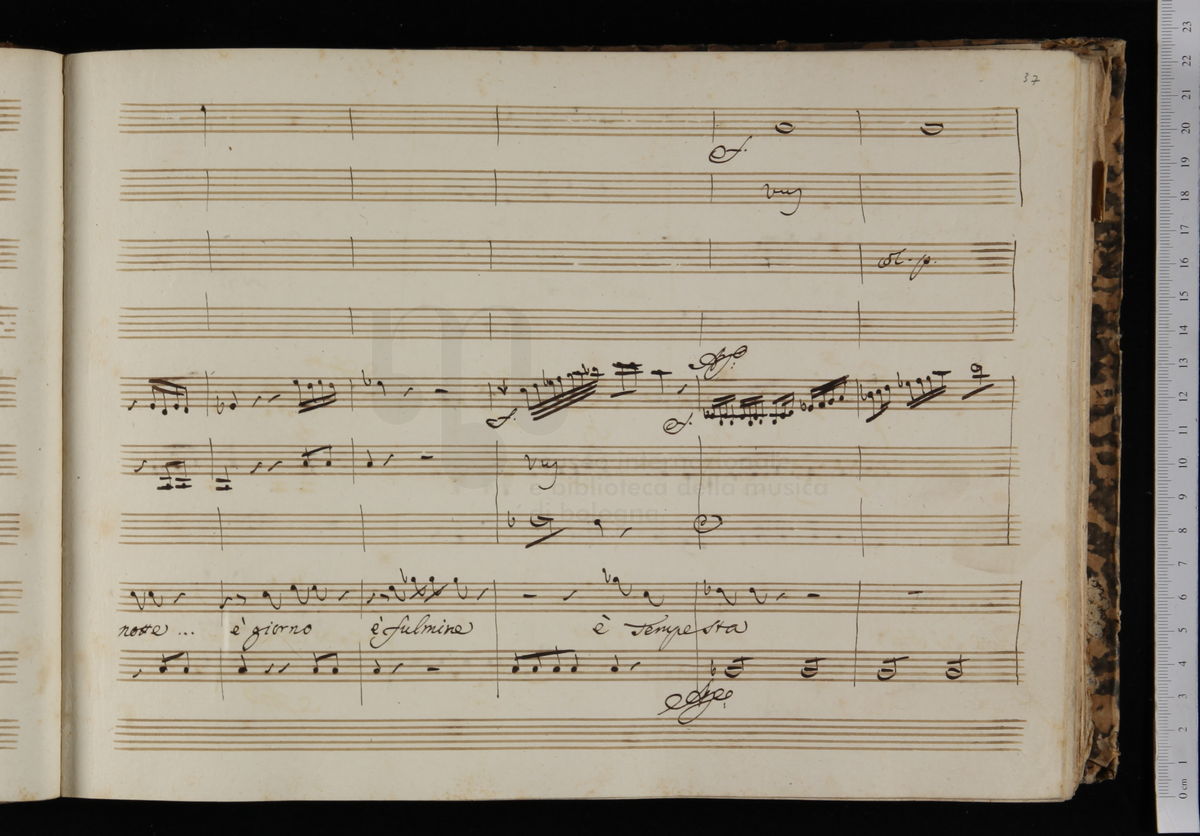 37
f.
unis
Col. p.
f.
f.
unis
e biblioteca della musica
di bologna
notte ... è giorno è fulmine è tempesta
23
22
21
20
19
18
17
16
15
14
13
12
11
10
9
8
7
6
5
4
3
2
1
0 cm